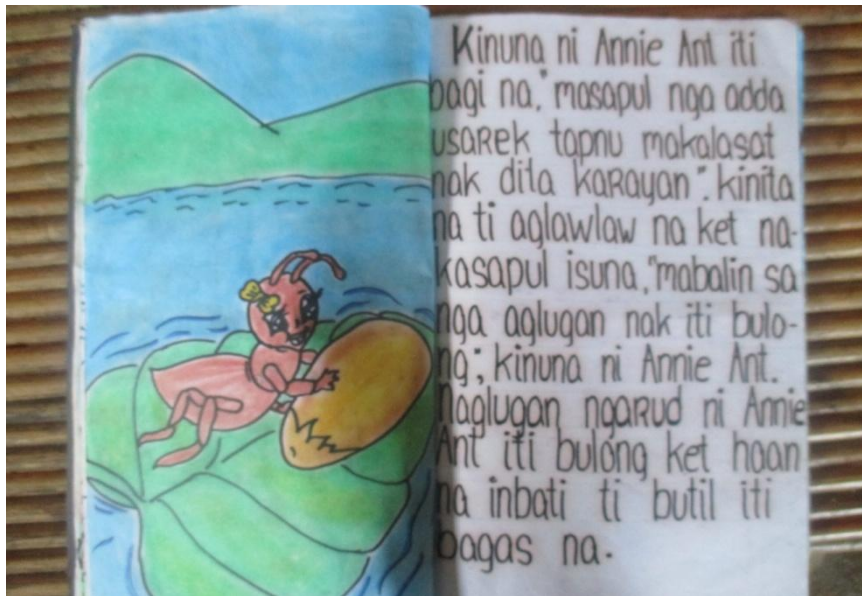 Kinuna ni Annie Ant iti
bagi na, "masapul nga adda
usarek tapnu makalasat
nak dita karayan". kinita
na ti aglawlaw na ket na-
kasapul isuna, "mabalin sa
nga aglugan nak iti bulo-
ng", kinuna ni Annie Ant.
Naglugan ngarud ni Annie
Ant iti bulong ket haan
na inbati ti butil iti
bagas na.